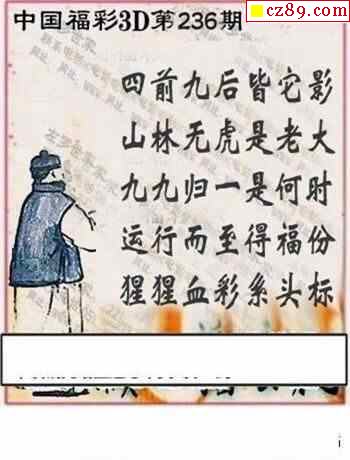 cz89.com
中国福彩3D第236期
四前九后皆它影
山林无虎是老大
九九归一是何时
运行而至得福份
猩猩血彩系头标